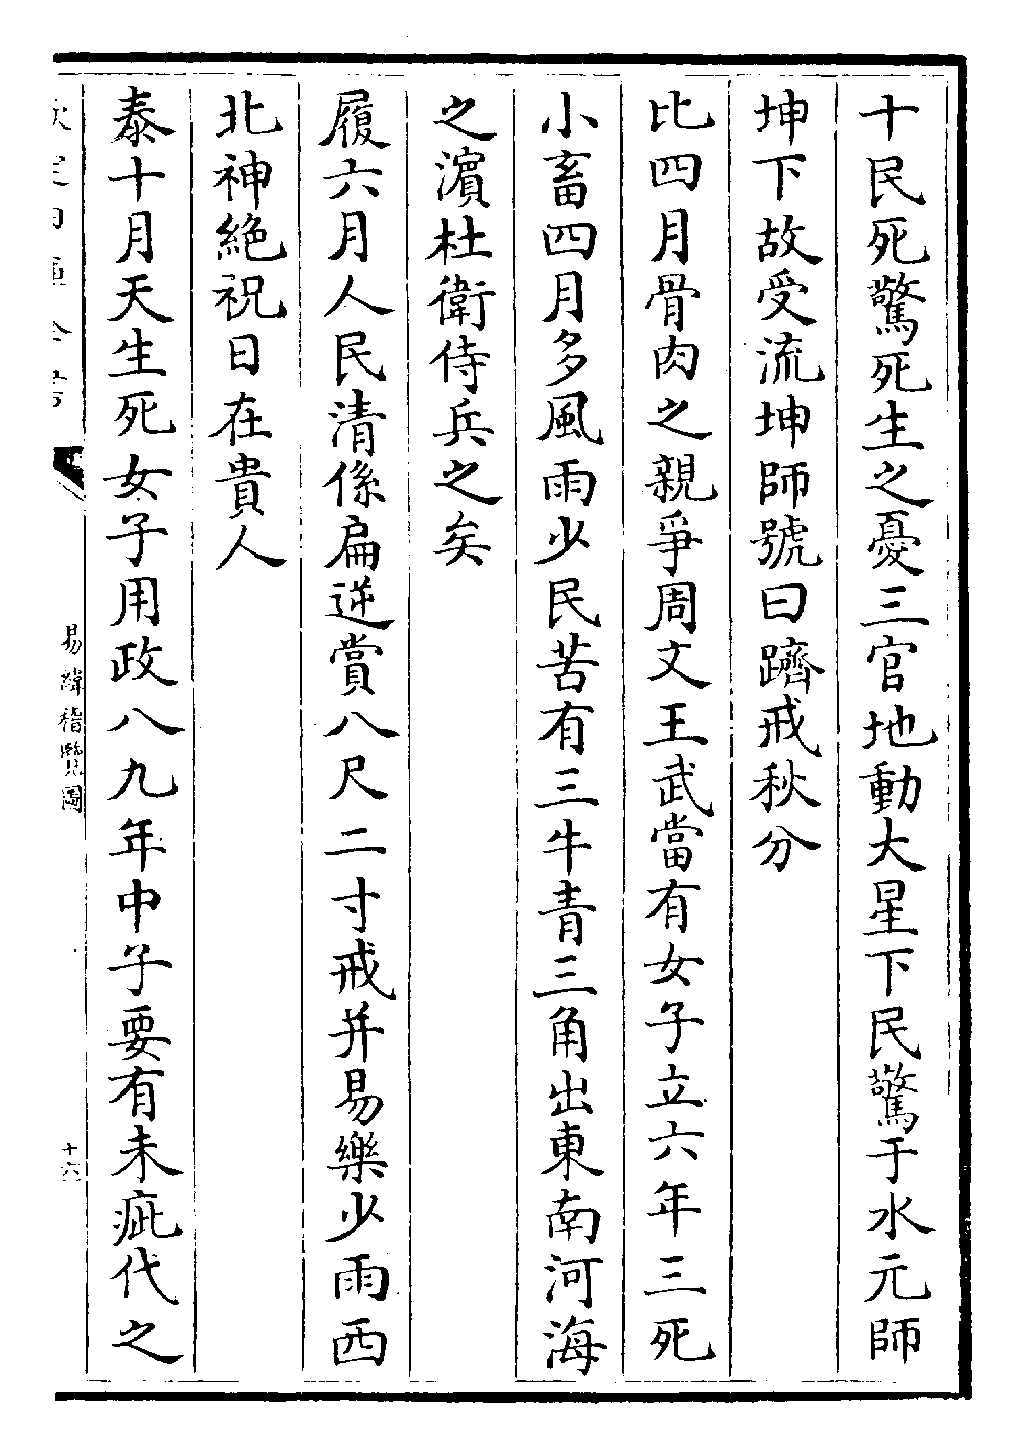 十民死驚死生之憂三官地動大星下民驚于水元師
坤下故受流坤師號曰躋戒秋分
比四月骨肉之親爭周文王武當有女子立六年三死
小畜四月多風雨少民苦有三牛青三角出東南河海
之濵杜衛侍兵之矣
履六月人民清係扁逆賞八尺二寸戒并易樂少雨西
北神絶祝日在貴人
泰十月天生死女子用政八九年中子要有未疵代之
易緯稽覽圖
十六